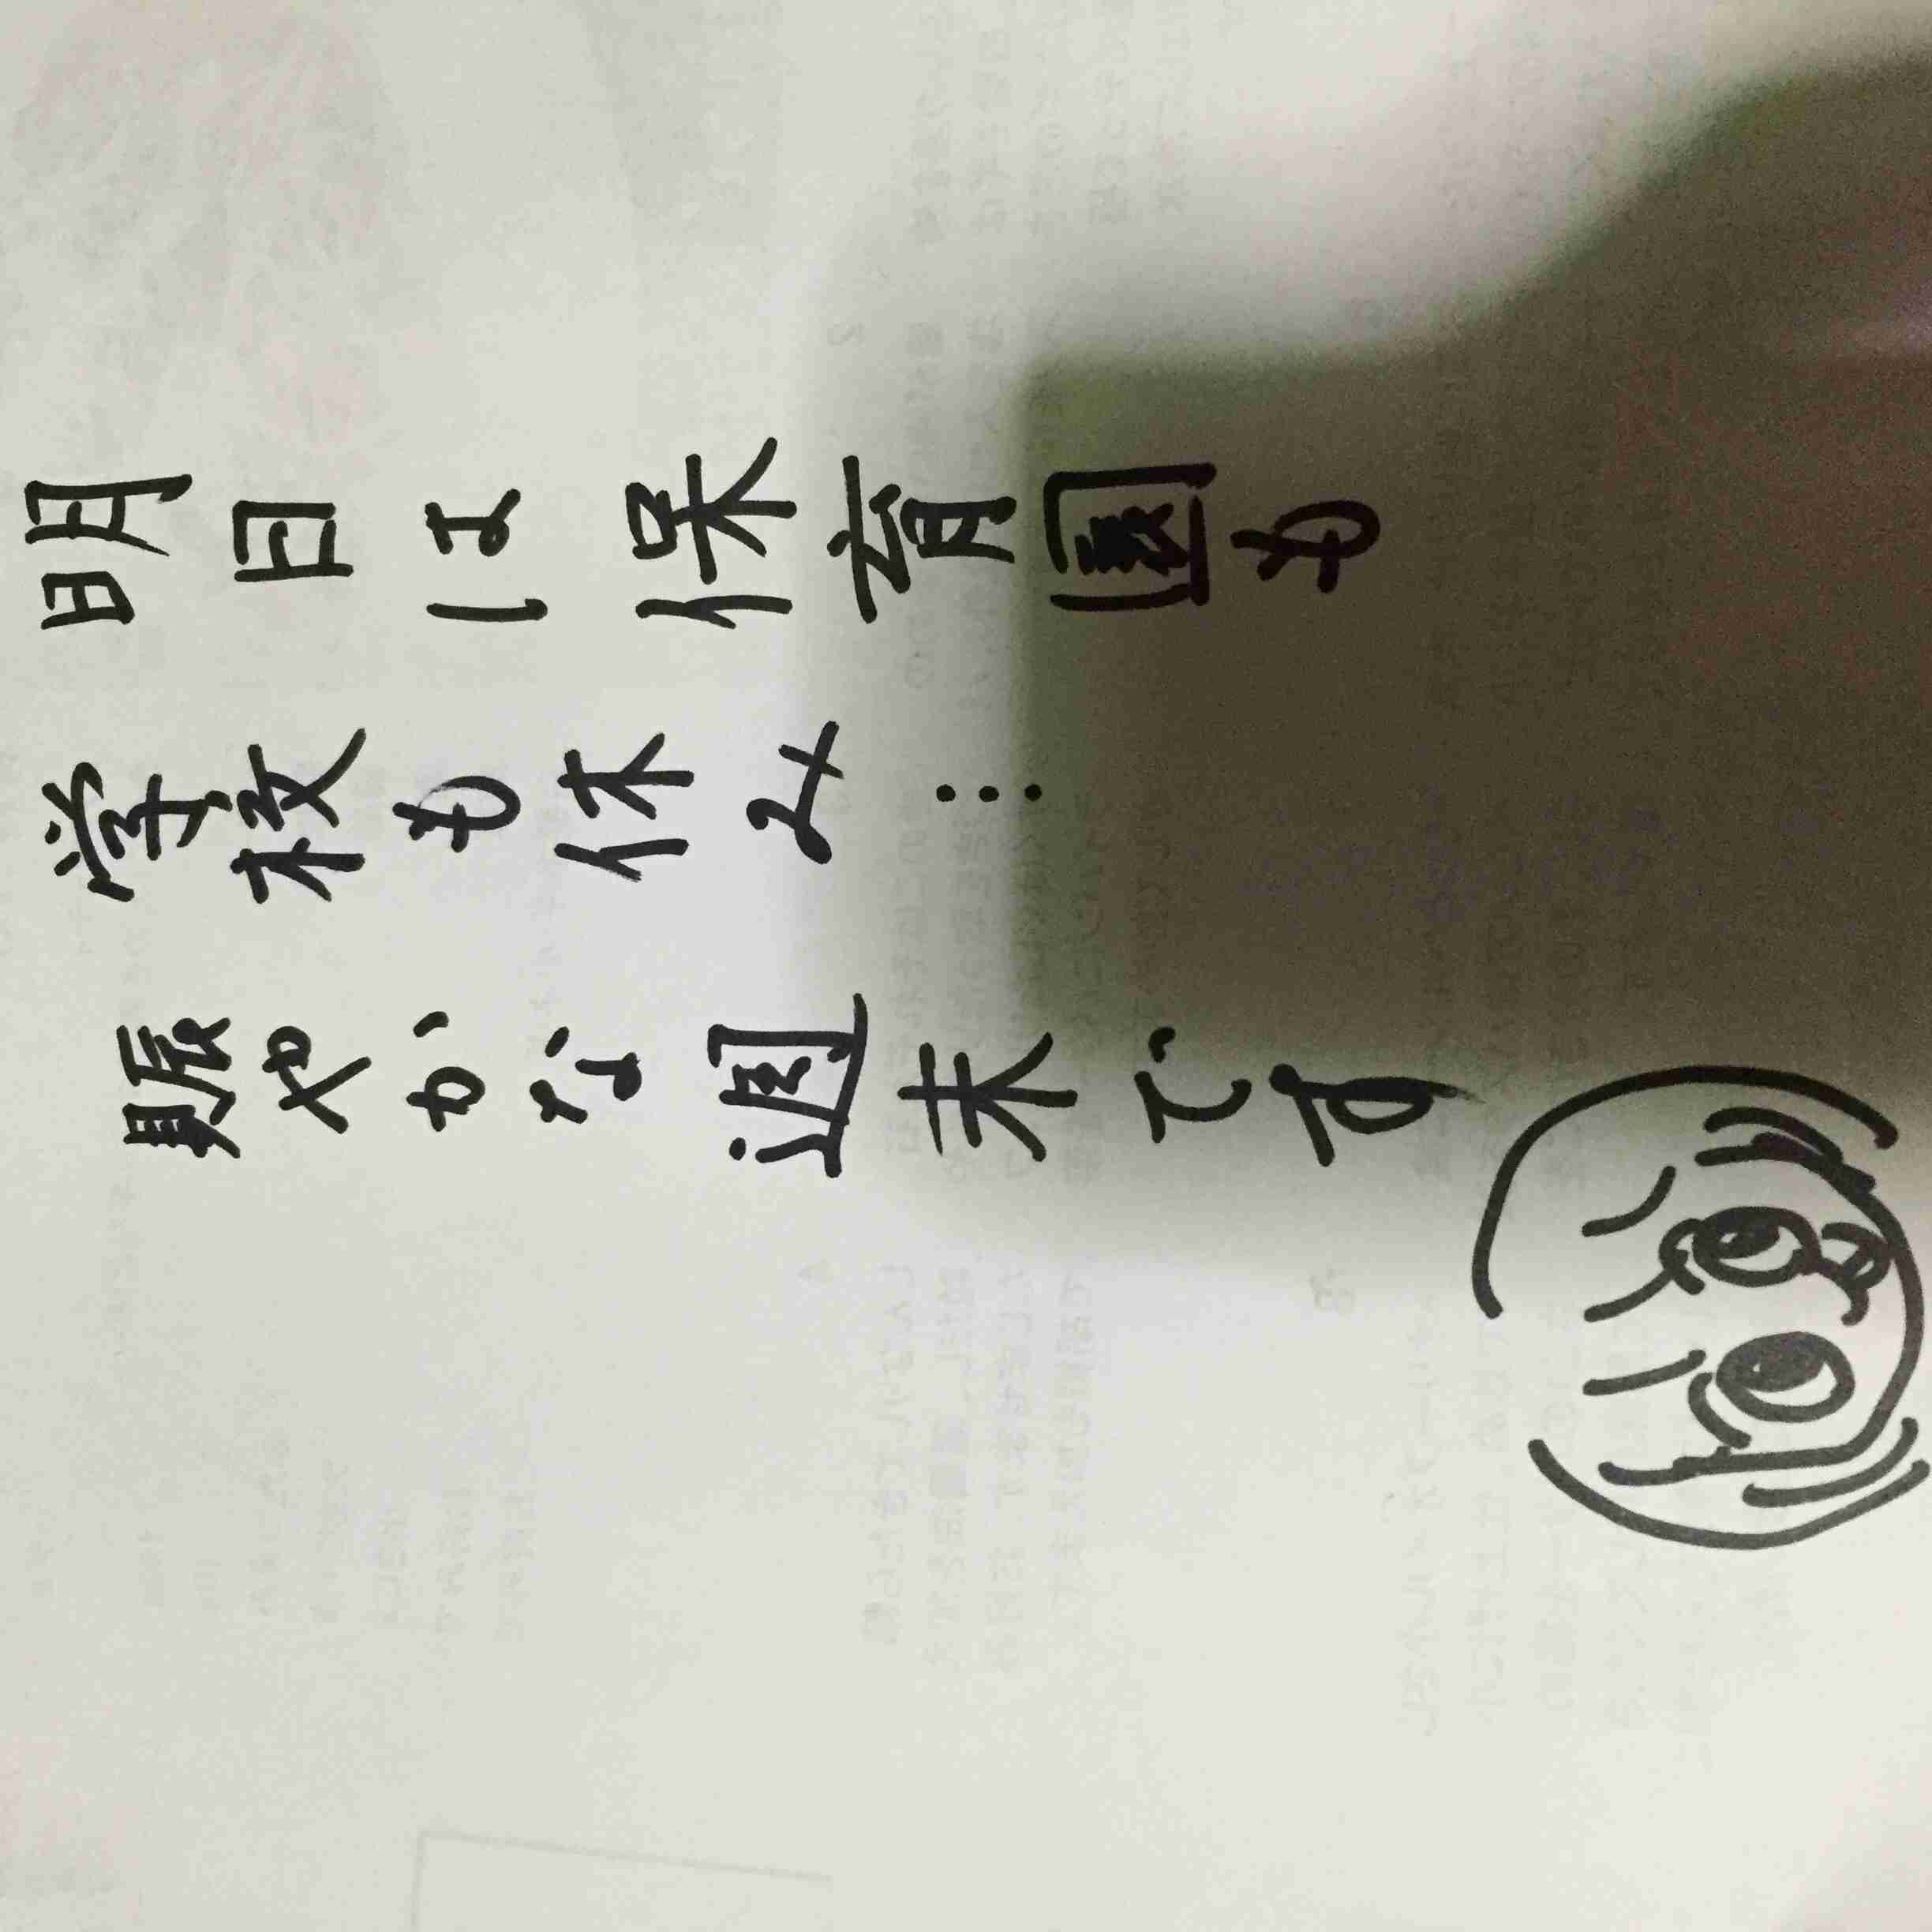 明日は保育園も
学校も休み…
賑やかな週末です